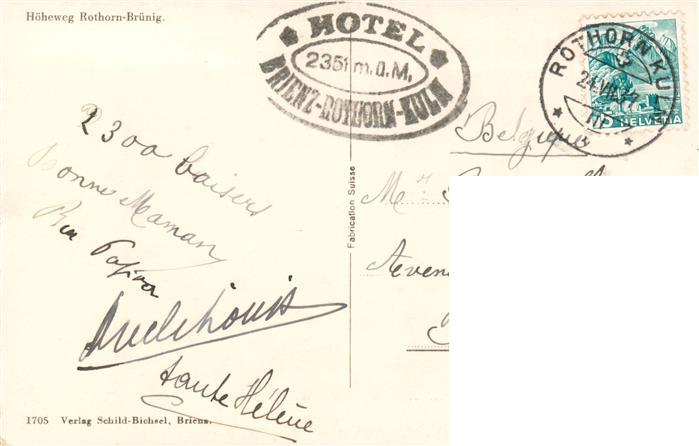 Höheweg Rothorn-Brünig.
HOTEL
2351 m.ü.M.
BRIENZ-ROTHORN-KULM
ROTHORN KULM
HELVETIA
Belgique
2300 baisers
Bonne Maman
Fabrication Suisse
M
Aven
tante Hélène
1705 Verlag Schild-Bichsel, Brienz.